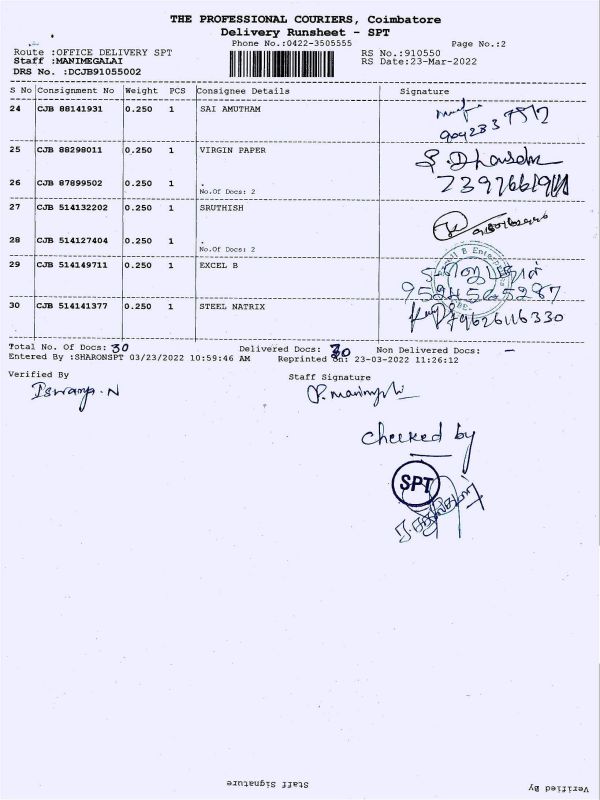 THE PROFESSIONAL COURIERS, Coimbatore
Delivery Runsheet - SPT
Phone No.:0422-3505555 Page No.:2
Route :OFFICE DELIVERY SPT RS No.:910550
Staff :MANIMEGALAI RS Date:23-Mar-2022
DRS No. :DCJB91055002
S No Consignment No Weight PCS Consignee Details Signature
24 CJB 88141931 0.250 1 SAI AMUTHAM
25 CJB 88298011 0.250 1 VIRGIN PAPER
26 CJB 87899502 0.250 1 .
No.Of Docs: 2
27 CJB 514132202 0.250 1 SRUTHISH
28 CJB 514127404 0.250 1 .
No.Of Docs: 2
29 CJB 514149711 0.250 1 EXCEL B
30 CJB 514141377 0.250 1 STEEL NATRIX
9626116330
Total No. Of Docs: 30 Delivered Docs: 30 Non Delivered Docs: –
Entered By :SHARONSPT 03/23/2022 10:59:46 AM Reprinted On: 23-03-2022 11:26:12
Verified By Staff Signature
checked by
SPT
Staff Signature
Verified By